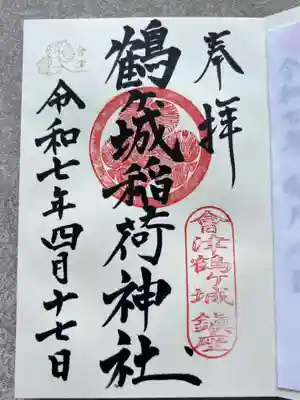 奉拝
會津鶴ヶ城鎮座
鶴ヶ城稲荷神社
會津
令和七年四月十七日